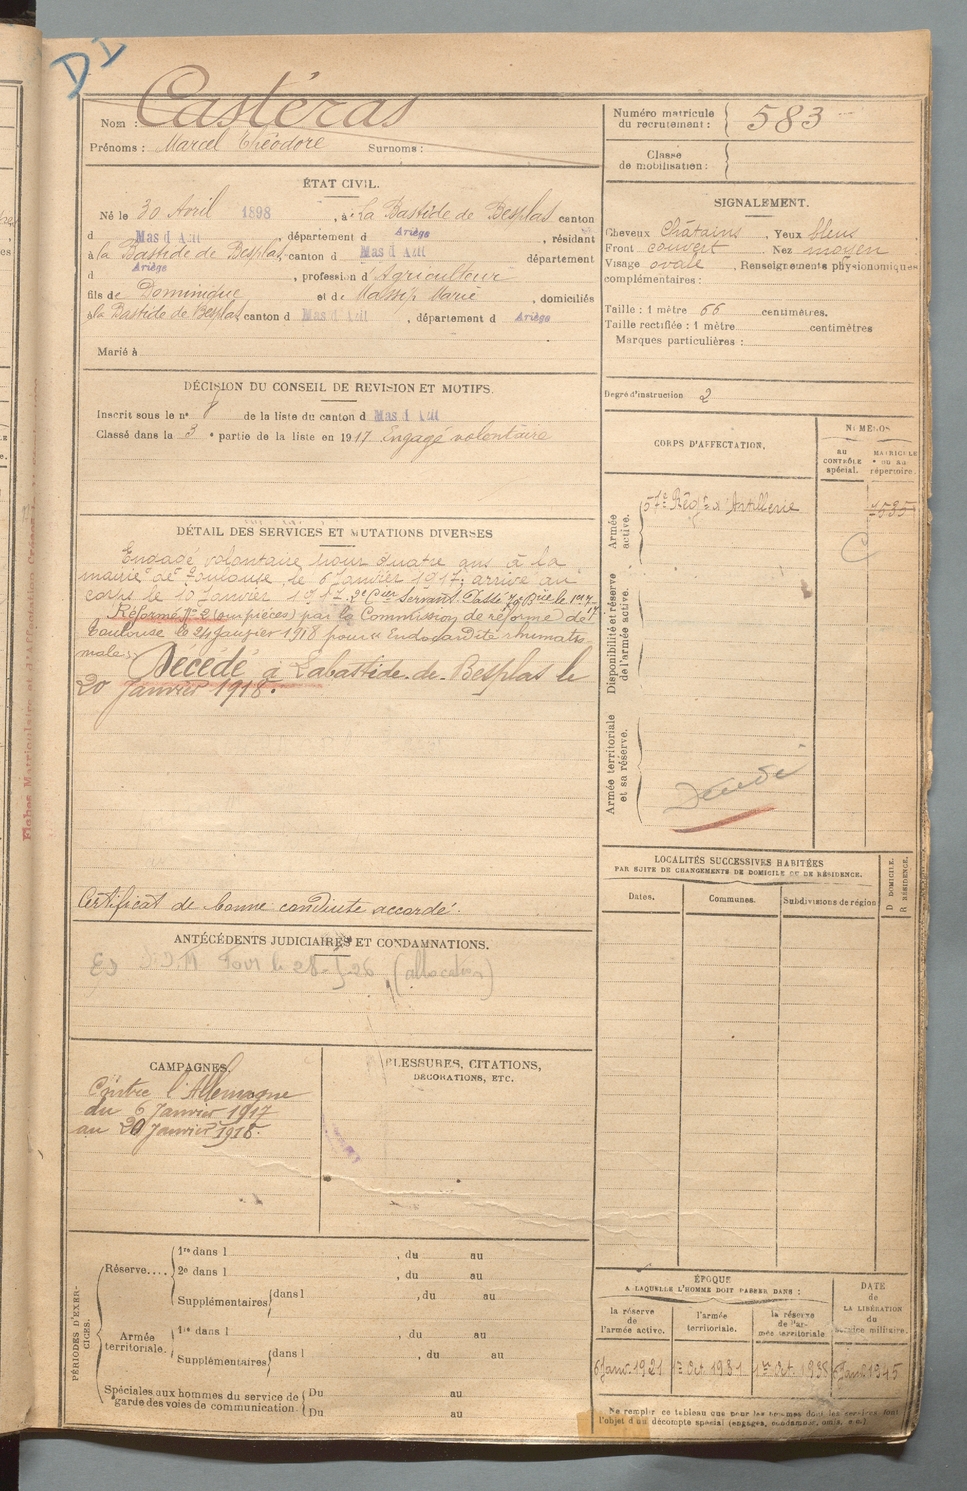 DI
Nom : Castéras
Prénoms : Marcel Théodore Surnoms :
Numéro matricule du recrutement : 583
Classe de mobilisation :
ÉTAT CIVIL.
Né le 30 Avril 1898, à La Bastide de Besplas canton
d Mas d Azil, département d Ariège, résidant
à la Bastide de Besplas, canton d Mas d Azil département
d Ariège, profession d'Agriculteur
fils de Dominique et de Massip Marie, domiciliés
à la Bastide de Besplas canton d Mas d Azil, département d Ariège
Marié à
SIGNALEMENT.
Cheveux Châtains, Yeux bleus
Front couvert Nez moyen
Visage ovale, Renseignements physionomiques
complémentaires :
Taille : 1 mètre 66 centimètres.
Taille rectifiée : 1 mètre centimètres
Marques particulières :
Degré d'instruction 2
DÉCISION DU CONSEIL DE REVISION ET MOTIFS.
Inscrit sous le n° 8 de la liste du canton d Mas d Azil
Classé dans la 3e partie de la liste en 1917 Engagé volontaire
CORPS D'AFFECTATION.
NUMÉROS
AU CONTRÔLE spécial.
MATRICULE ou au répertoire.
Armée active.
57e Régt d'Artillerie
1535
Disponibilité et réserve de l'armée active.
Armée territoriale et sa réserve.
Décédé
DÉTAIL DES SERVICES ET MUTATIONS DIVERSES
Engagé volontaire pour quatre ans à la
mairie de Toulouse, le 6 Janvier 1917; arrivé au
corps le 10 Janvier 1917. 2e Cer Servant. Passé
Réformé No 2 (sur pièces) par la Commission de réforme de
Toulouse le 24 Janvier 1918 pour "Endocardite rhumatis-
male".
Décédé à Labastide-de-Besplas le
20 Janvier 1918.
Certificat de bonne conduite accordé.
LOCALITÉS SUCCESSIVES HABITÉES
PAR SUITE DE CHANGEMENTS DE DOMICILE OU DE RÉSIDENCE.
Dates.
Communes.
Subdivisions de région
D. DOMICILE.
R. RÉSIDENCE.
ANTÉCÉDENTS JUDICIAIRES ET CONDAMNATIONS.
(allocation)
CAMPAGNES.
Contre l'Allemagne
du 6 Janvier 1917
au 20 Janvier 1918.
BLESSURES, CITATIONS,
DÉCORATIONS, ETC.
PÉRIODES D'EXERCICES.
Réserve....
1re dans l , du au
2e dans l , du au
Supplémentaires dans l , du au
Armée territoriale.
1re dans l , du au
Supplémentaires dans l , du au
Spéciales aux hommes du service de garde des voies de communication.
Du au
Du au
ÉPOQUE
A LAQUELLE L'HOMME DOIT PASSER DANS :
la réserve de l'armée active.
l'armée territoriale.
la réserve de l'armée territoriale
DATE de LA LIBÉRATION du service militaire.
6 Janv. 1921
1er Oct. 1931
1er Oct. 1938
6 Janv. 1945
Ne remplir ce tableau que pour les hommes dont les services font
l'objet d'un décompte spécial (engagés, condamnés, omis, etc.)